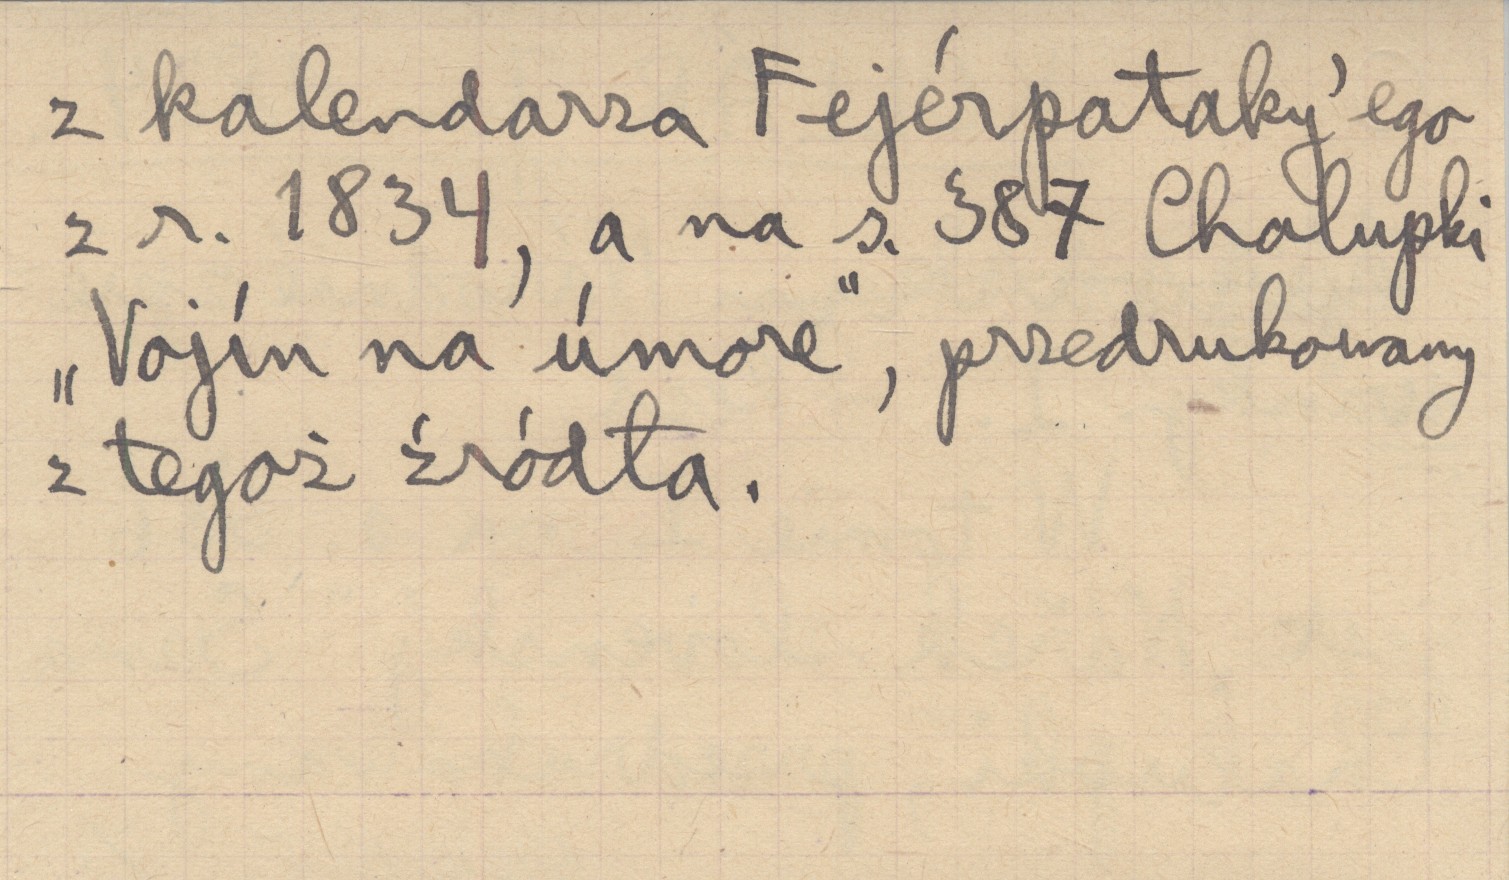 z kalendarza Fejérpataky'ego
z r. 1834, a na s. 387 Chalupki
„Vojín na úmore”, przedrukowany
z tegoż źródła.